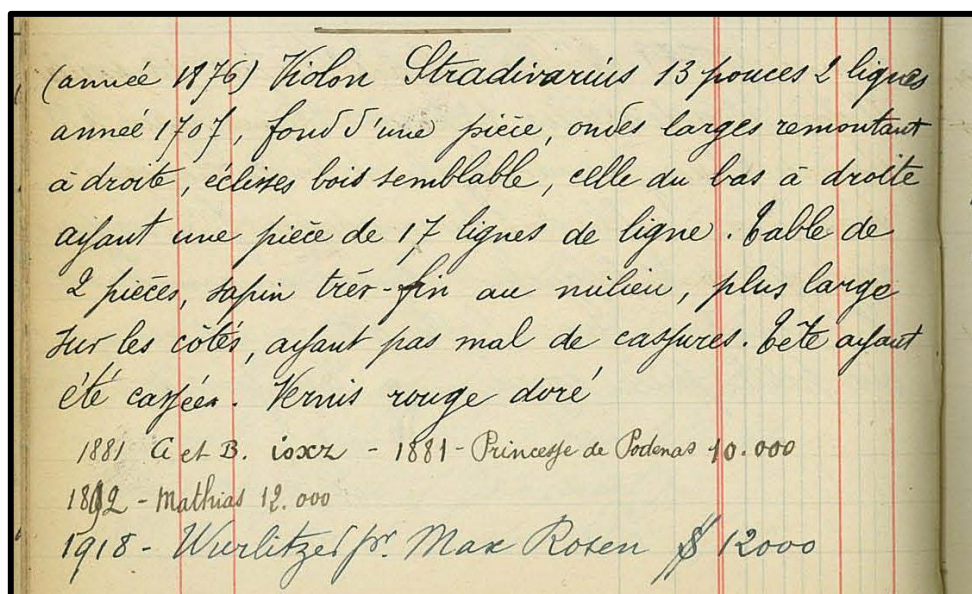 (année 1876) Violon Stradivarius 13 pouces 2 lignes
année 1707, fond d'une pièce, ondes larges remontant
à droite, éclisses bois semblable, celle du bas à droite
ayant une pièce de 17 lignes de ligne. Table de
2 pièces, sapin très-fin au milieu, plus large
sur les côtés, ayant pas mal de cassures. Tête ayant
été cassée. Vernis rouge doré
1881 G et B. ioxz - 1881 - Princesse de Podenas 10.000
1892 - Mathias 12.000
1918 - Wurlitzer pr. Max Rosen $ 12000